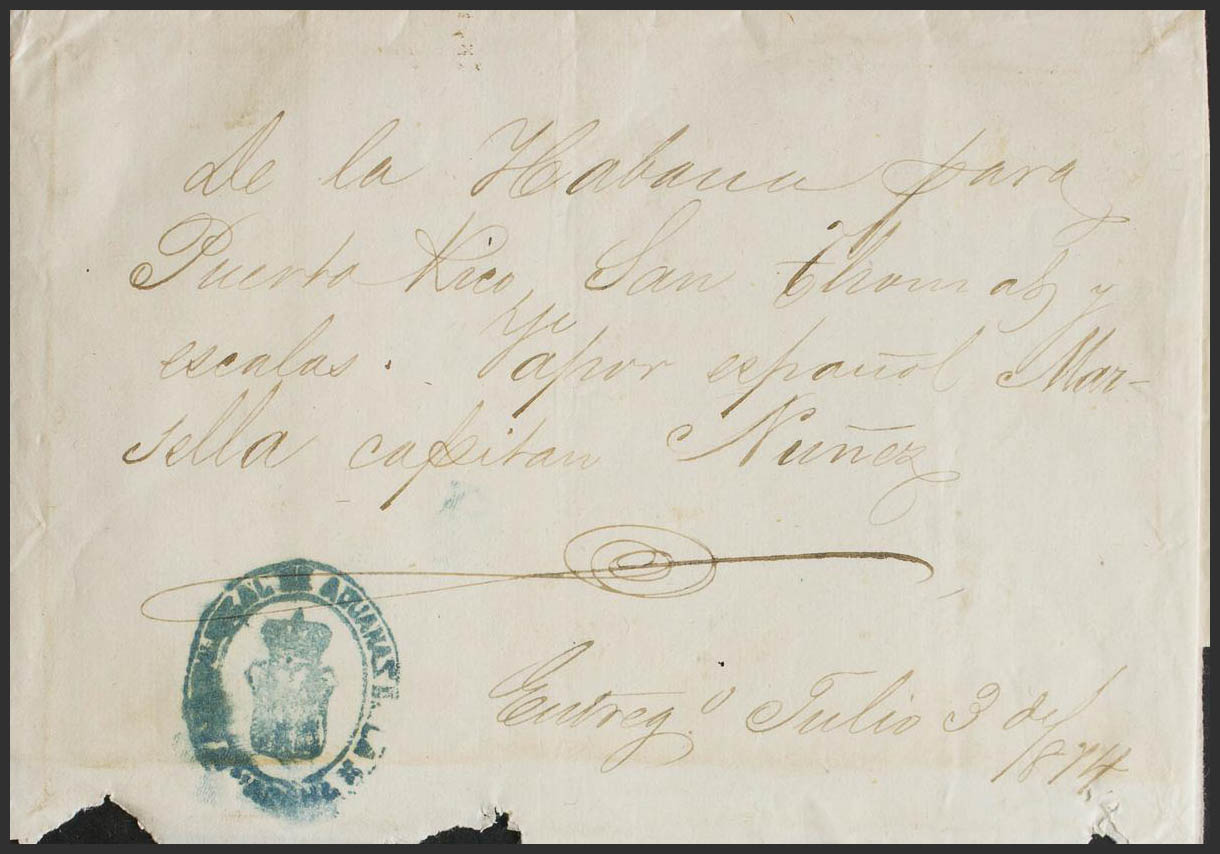 De la Habana para
Puerto Rico San Thomas y
escalas. Vapor español Mar-
sella capitan Nuñez
Entreg.º Julio 3 de
1874
ADUANAS